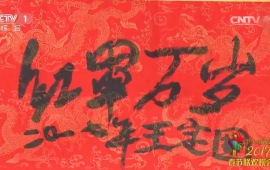 CCTV 1
综合
CNTV
红军万岁
二〇一七年王宝国
2017
春节联欢晚会